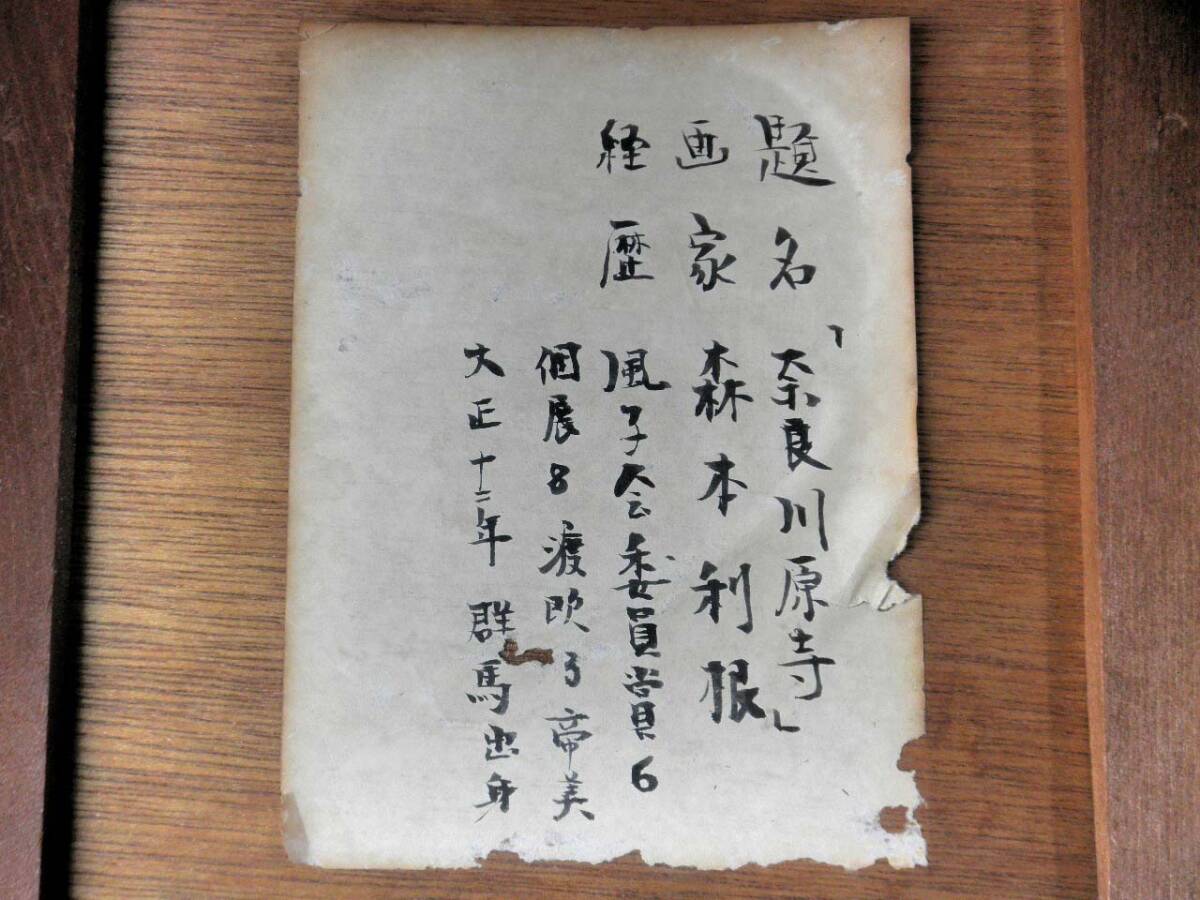 題名「奈良川原寺」
画家 森本利根
経歴 風子会委員賞6
個展8渡欧3帝美
大正十二年 群馬出身